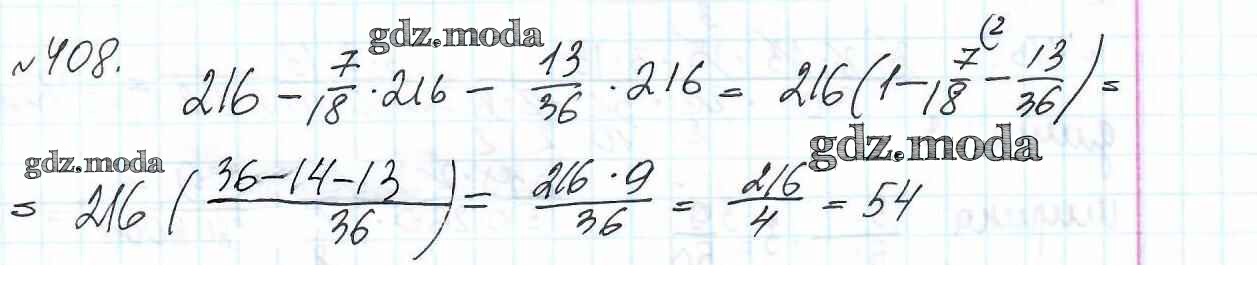 gdz.moda
№408. 216 - 7/18 · 216 - 13/36 · 216 = 216 (1 - 7/18 (2 - 13/36) =
gdz.moda gdz.moda
= 216 ( (36-14-13)/36 ) = (216 · 9)/36 = 216/4 = 54